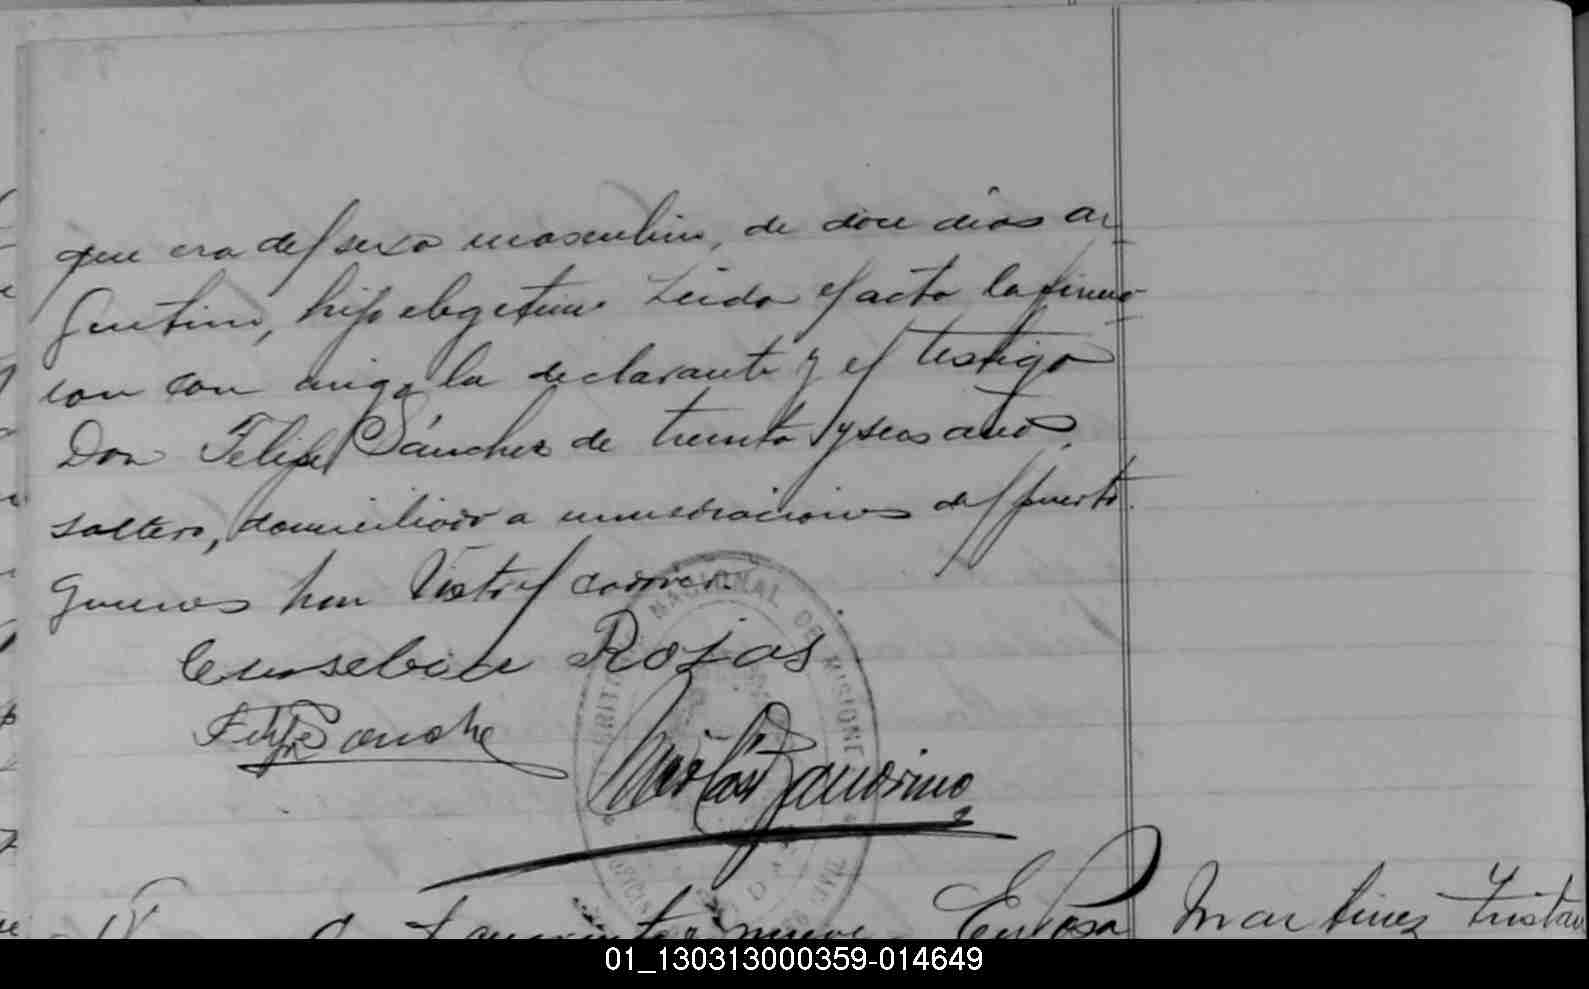 que era del sexo masculino, de doce dias ar
gentino, hijo elegetimo Leida el acta la firma
ron con migo la declarante y el testigo
Don Felipe Sánchez de treinta y seis años,
soltero, domiciliado a inmediaciones del puerto
quienes han visto el cadaver.
Eusebia Rojas
Felipe Sanche
NACIONAL DE MISIONES
Nicolás
Martinez
01_130313000359-014649